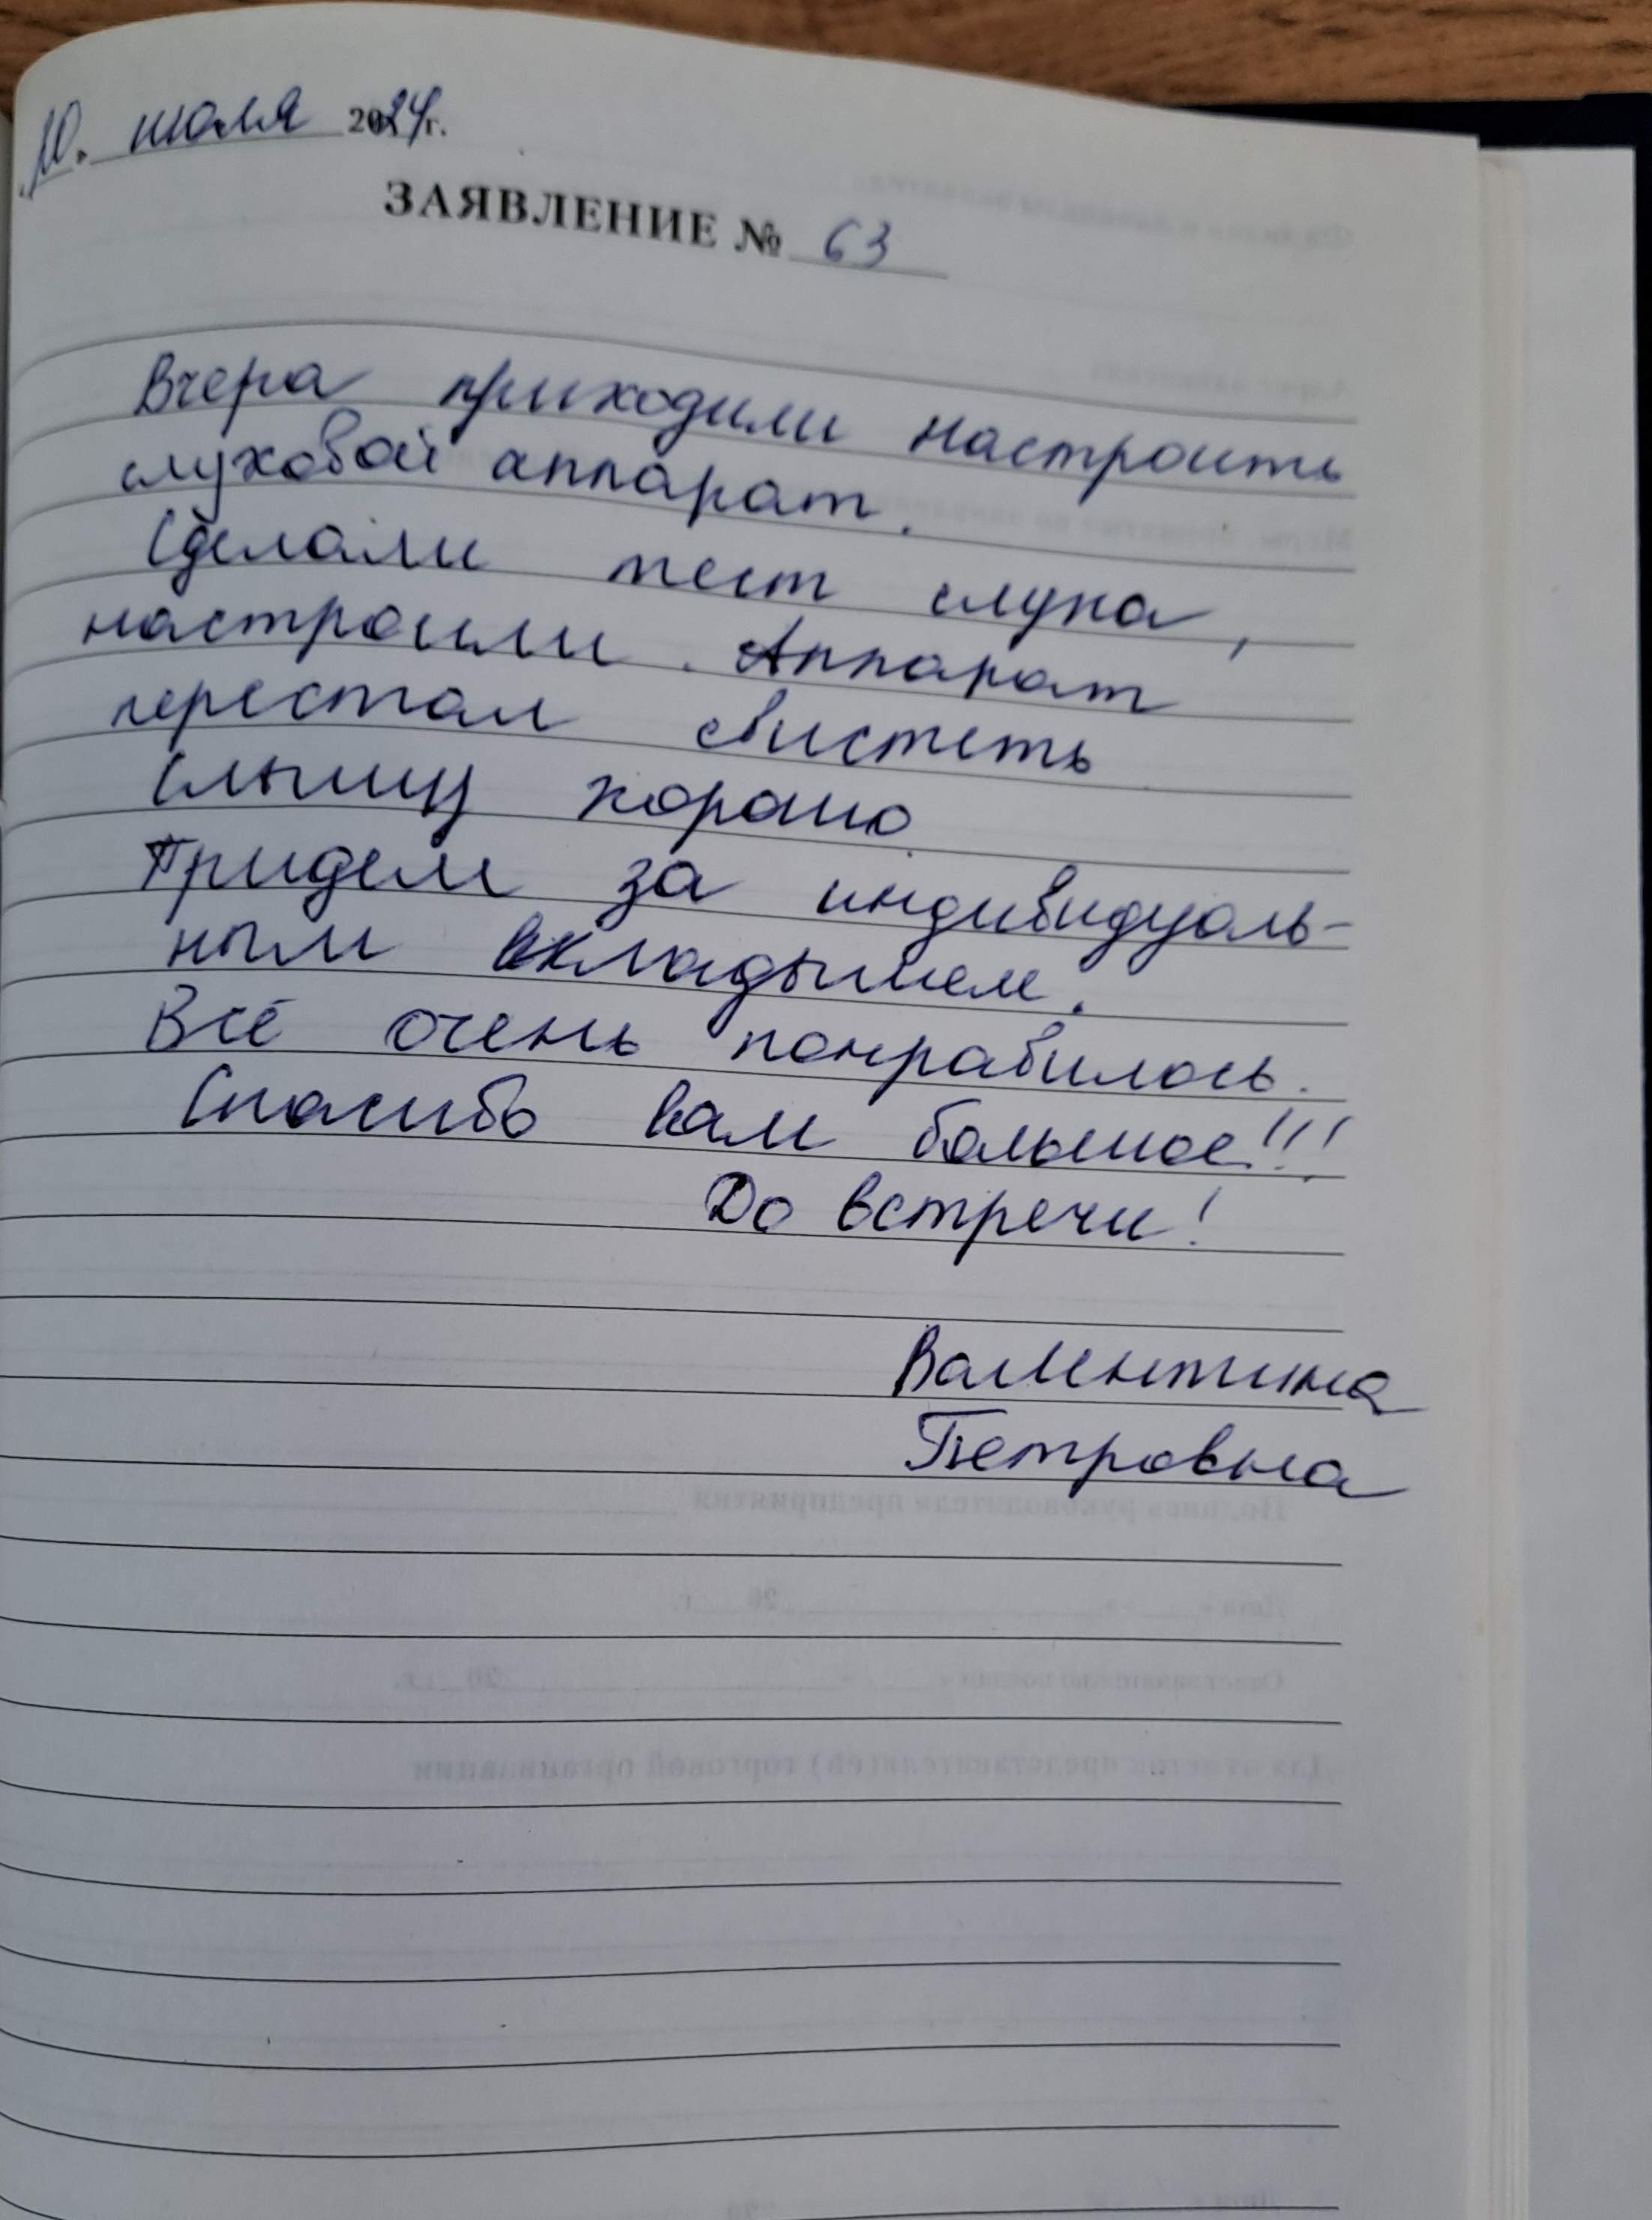 10. июля 2024г.
ЗАЯВЛЕНИЕ № 63
Вчера приходили настроить
слуховой аппарат.
Сделали тест слуха,
настроили. Аппарат
перестал свистеть
Слышу хорошо
Придем за индивидуаль-
ным вкладышем.
Всё очень понравилось.
Спасибо вам большое!!!
До встречи!
Валентина
Петровна